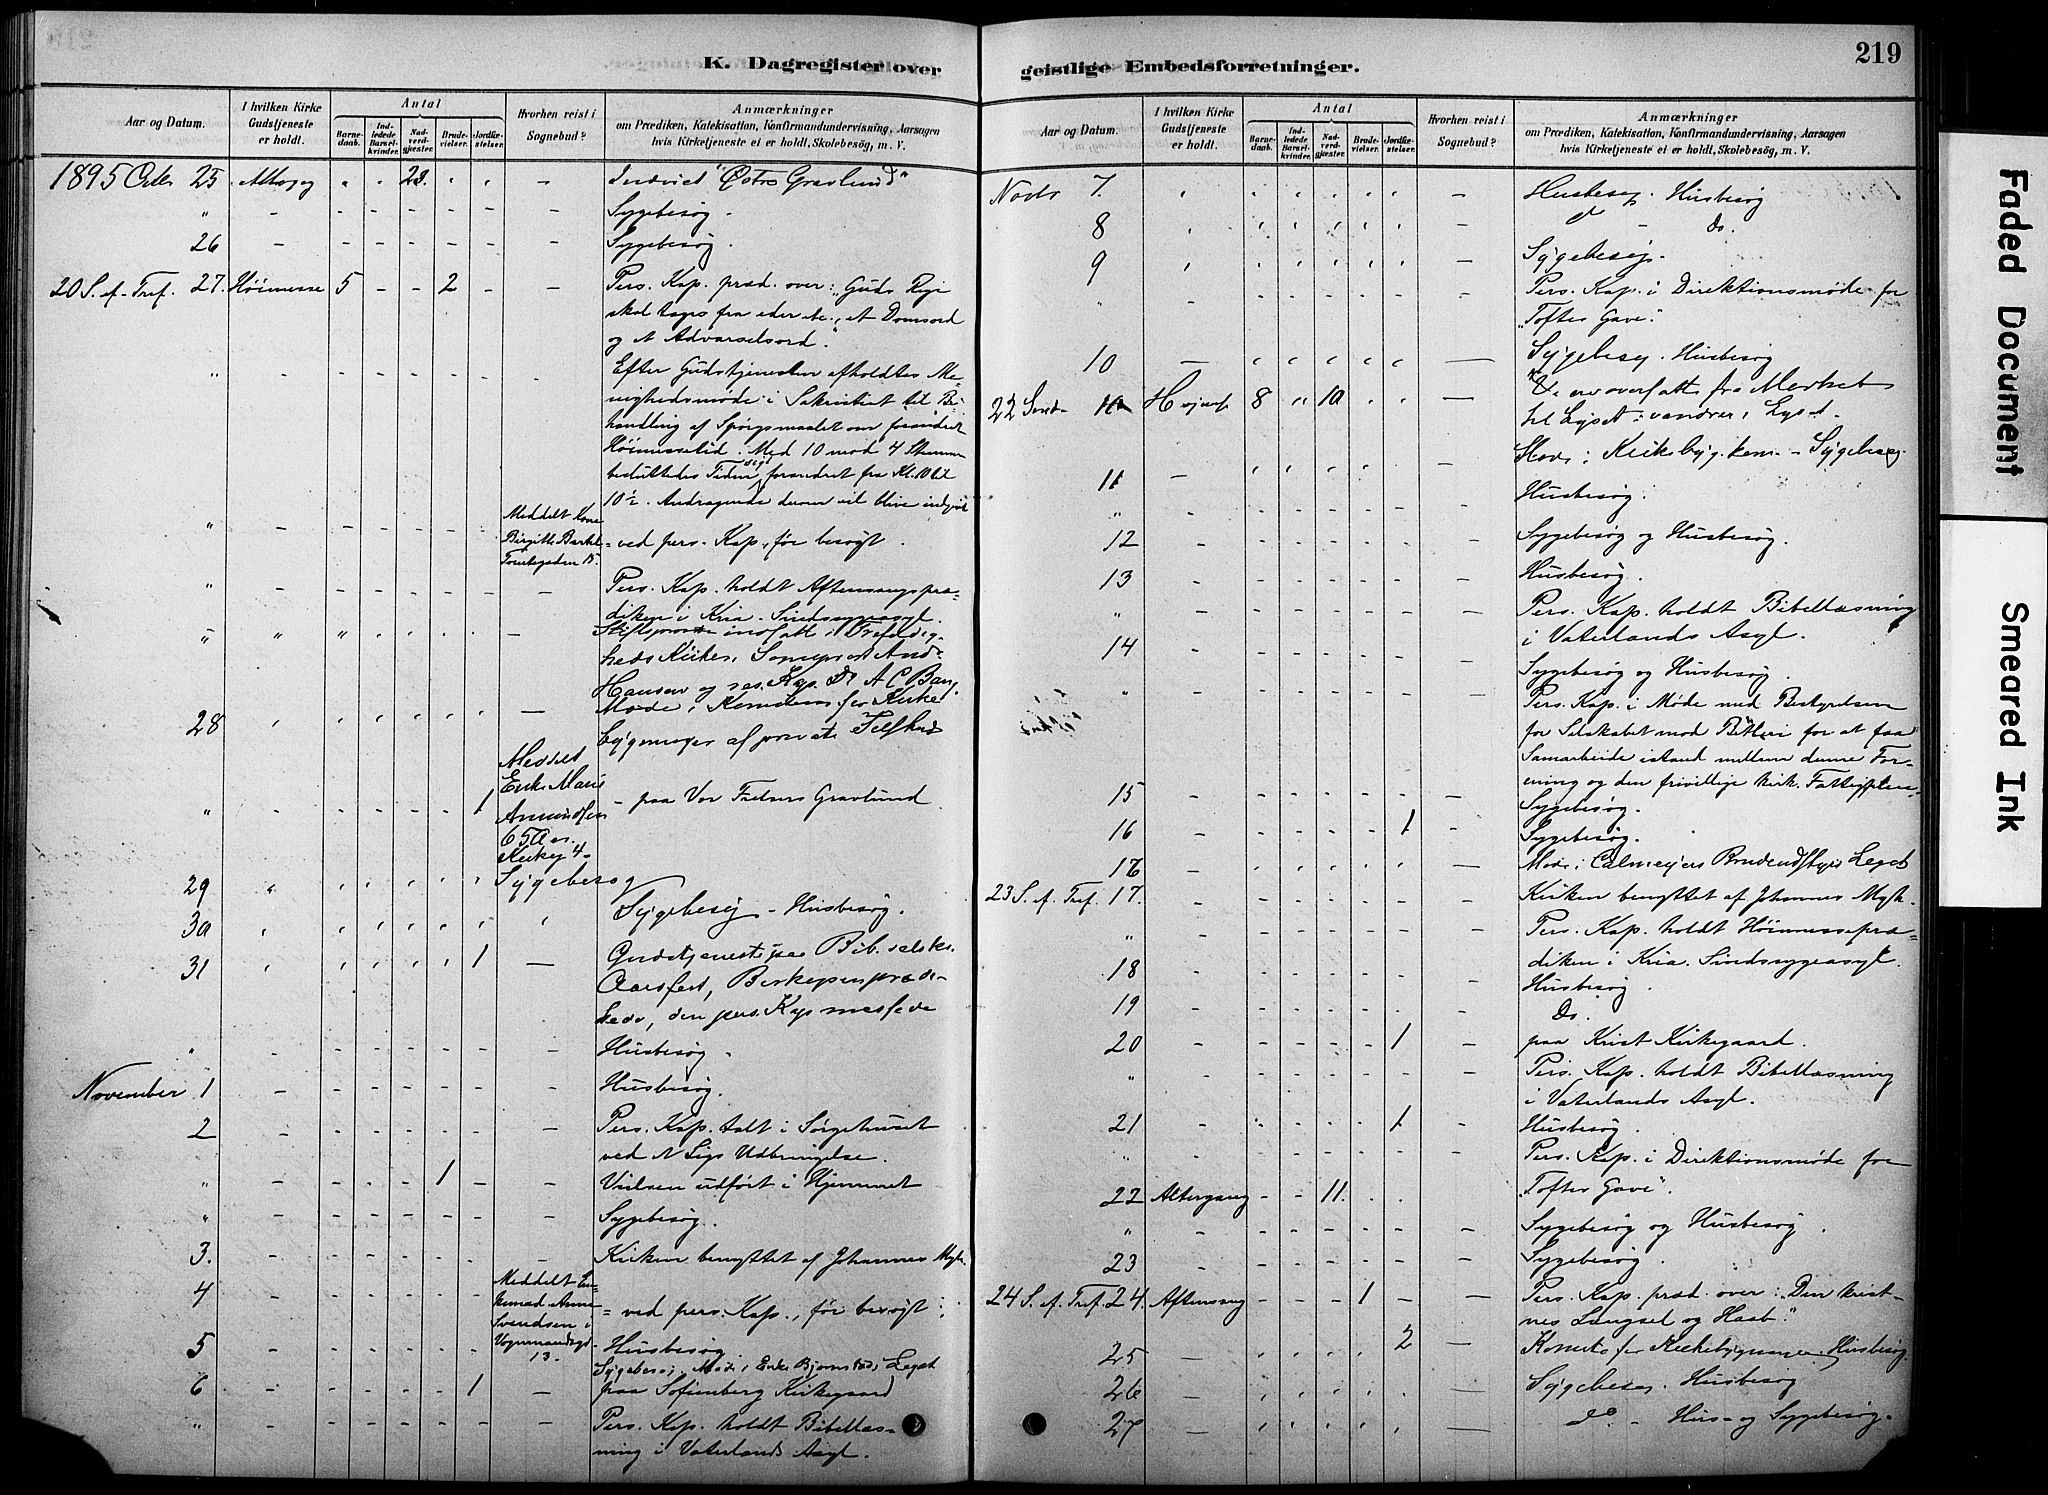 219
K. Dagregister over
geistlige Embedsforretninger.
Aar og Datum.
I hvilken Kirke Gudstjeneste er holdt.
Antal
Barnedaab.
Indledede Barselkvinder.
Nadverdgjæster.
Brudevielser.
Jordfæstelser.
Hvorhen reist i Sognebud?
Anmærkninger
om Prædiken, Katekisation, Konfirmandundervisning, Aarsagen
hvis Kirketjeneste ei er holdt, Skolebesøg, m. V.
1895 Octr 25
Sygebesøg.
26 Sygebesøg.
20 S. ef. Tref. 27. Høimesse 5 - - 2 - - Pers. Kap. præd. over: "Guds Rige
skal tages fra eder etc., et Domsord
og et Advarselsord."
Efter Gudstjenesten afholdtes Me-
nighedsmøde i Sakristiet til Be-
handling af Spørgsmaalet om forandret
Høimessetid. Med 10 mod 4 Stemmer
besluttedes Tiden forandret fra Kl. 10 til
10½. Andragende derom vil blive indgivet
Meddelt Kone
Birgitte
- ved pers. Kap., før besøgt.
Pers. Kap. holdt Aftensangspræ-
diken i Kria. Sindssygeasyl.
Stiftsprovst indsatt i Trefoldig-
heds Kirke,
Hansen og res. Kap. Dr A C Bang.
28 Møde i Komiteen for Kirke
bygninger af private
Meddelt
Enke Marie
Amundsen
65 Aar
1 - paa Vor Frelsers Gravlund.
29 Sygebesøg
30 Sygebesøg - Husbesøg.
31 1 Gudstjeneste paa Bib. selsk.
Aarsfest, Biskopen præde-
kede, den pers. Kap messede
Husbesøg.
November 1 Husbesøg.
2 Pers. Kap. talt i Sørgehuset
ved et Ligs Udbringelse.
1 Vielsen udført i Hjemmet
Sygebesøg.
3. Kirken benyttet af Johannes
4 Meddelt En-
kemad. Anne
Svendsen i
Vognmandsgd.
13.
- ved pers. Kap., før besøgt.
5 Husbesøg
Sygebesøg, Møde i Enke Bjørnstads Legat
6 1 paa Sofienberg Kirkegaard
Pers. Kap. holdt Bibellæs-
ning i Vaterlands Asyl.
Aar og Datum.
I hvilken Kirke Gudstjeneste er holdt.
Antal
Barnedaab.
Indledede Barselkvinder.
Nadverdgjæster.
Brudevielser.
Jordfæstelser.
Hvorhen reist i Sognebud?
Anmærkninger
om Prædiken, Katekisation, Konfirmandundervisning, Aarsagen
hvis Kirketjeneste ei er holdt, Skolebesøg, m. V.
Novbr 7. Husbesøg. Husbesøg
8 Do.
9 Sygebesøg.
Pers. Kap. i Direktionsmøde for
"Toftes Gave."
10 Sygebesøg. Husbesøg
8 10 Vi er oversatt fra Mørket
til Lyset: vandrer i Lyset.
11 Møde i Kirkebyg.kom. - Sygebesøg.
Husbesøg.
12 Sygebesøg og Husbesøg.
13 Husbesøg.
Pers. Kap. holdt Bibellæsning
i Vaterlands Asyl.
14 Sygebesøg og Husbesøg.
Pers. Kap. i Møde med Bestyrelsen
for Selskabet mod Betleri for at faa
Samarbeide istand mellem denne For-
ening og den frivillige kirk. Fattigpleie.
15 Sygebesøg.
16 1 Sygebesøg.
Møde i Calmeyers Legat
23 S. ef. Tref. 17. Kirken benyttet af Johannes
Pers. Kap. holdt Høimessepræ-
diken i Kria. Sindssygeasyl.
18 Husbesøg.
19 Do.
20 1 paa Krist Kirkegaard.
Pers. Kap. holdt Bibellæsning
i Vaterlands Asyl.
21 1 Husbesøg.
Pers. Kap. i Direktionsmøde for
"Toftes Gave".
22 Altergang - - 11.
Sygebesøg og Husbesøg.
23 Sygebesøg.
24 S. ef. Tref. 24. Aftensang - - - 1 - - Pers. Kap. præd. over: "Den krist-
nes Længsel og Haab."
25 2 Komite for Kirkebygninger. Husbesøg.
26 Sygebesøg. Husbesøg
27 do - Hus- og Sygebesøg.
Faded Document
Smeared Ink